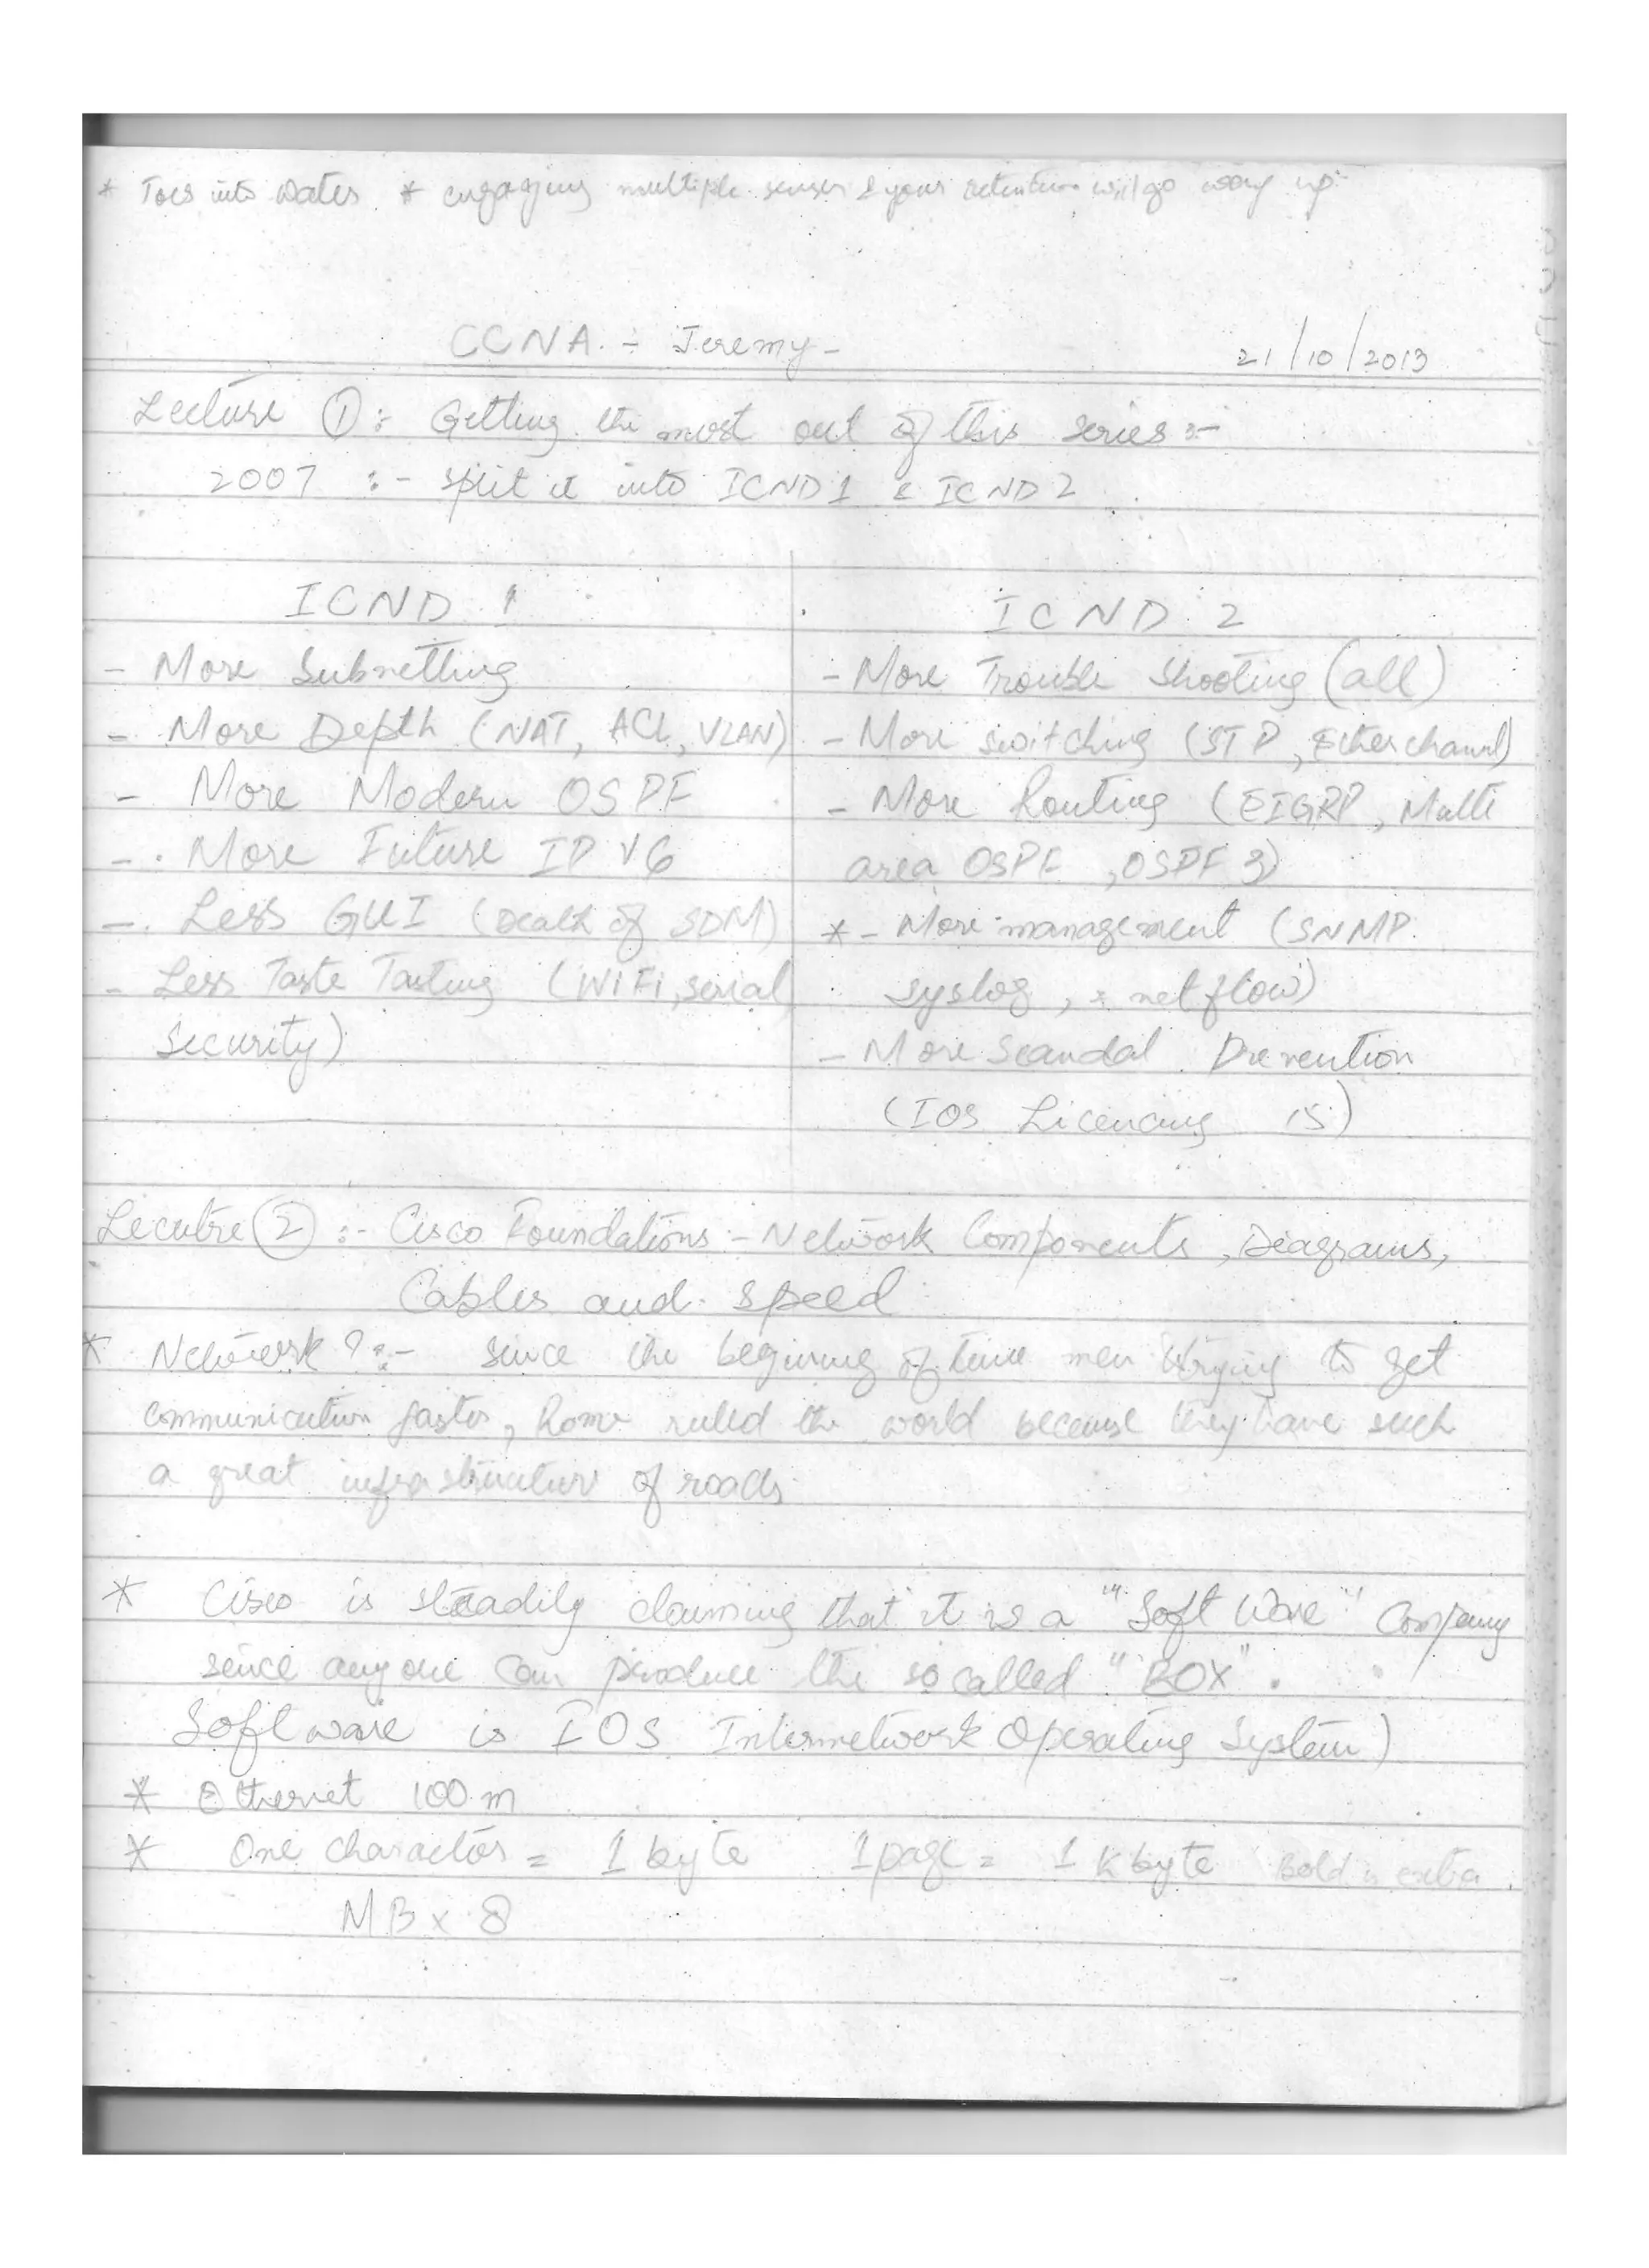 * Toes into Water * engaging multiple senses & your retention will go way up
CCNA :- Jeremy -
21/10/2013
Lecture ① :- Getting the most out of this series :-
2007 :- split it into ICND1 & ICND2
ICND 1
- More Subnetting
- More Depth (NAT, ACL, VLAN)
- More Modern OSPF
- More Future IPV6
- Less GUI (Death of SDM)
- Less Taste Tasting (WiFi, serial,
Security)
ICND 2
- More Trouble Shooting (all)
- More switching (STP, Etherchannel)
- More Routing (EIGRP, Multi
area OSPF, OSPF 3)
* - More management (SNMP
syslog, netflow)
- More Scandal Prevention
(IOS Licencing 15)
Lecutre ② :- Cisco Foundations :- Network Components, Diagrams,
Cables and speed
* Network ? :- since the begining of time men trying to get
communication faster, Rome ruled the world because they have such
a great infrastructure of roads
* Cisco is steadily claiming that it is a "Soft Ware" Company
since anyone can produce the so called "BOX".
Software is IOS Internetwork Operating System)
* Ethernet 100 m
* One character = 1 byte 1 page = 1 K byte Bold is extra.
MB x 8